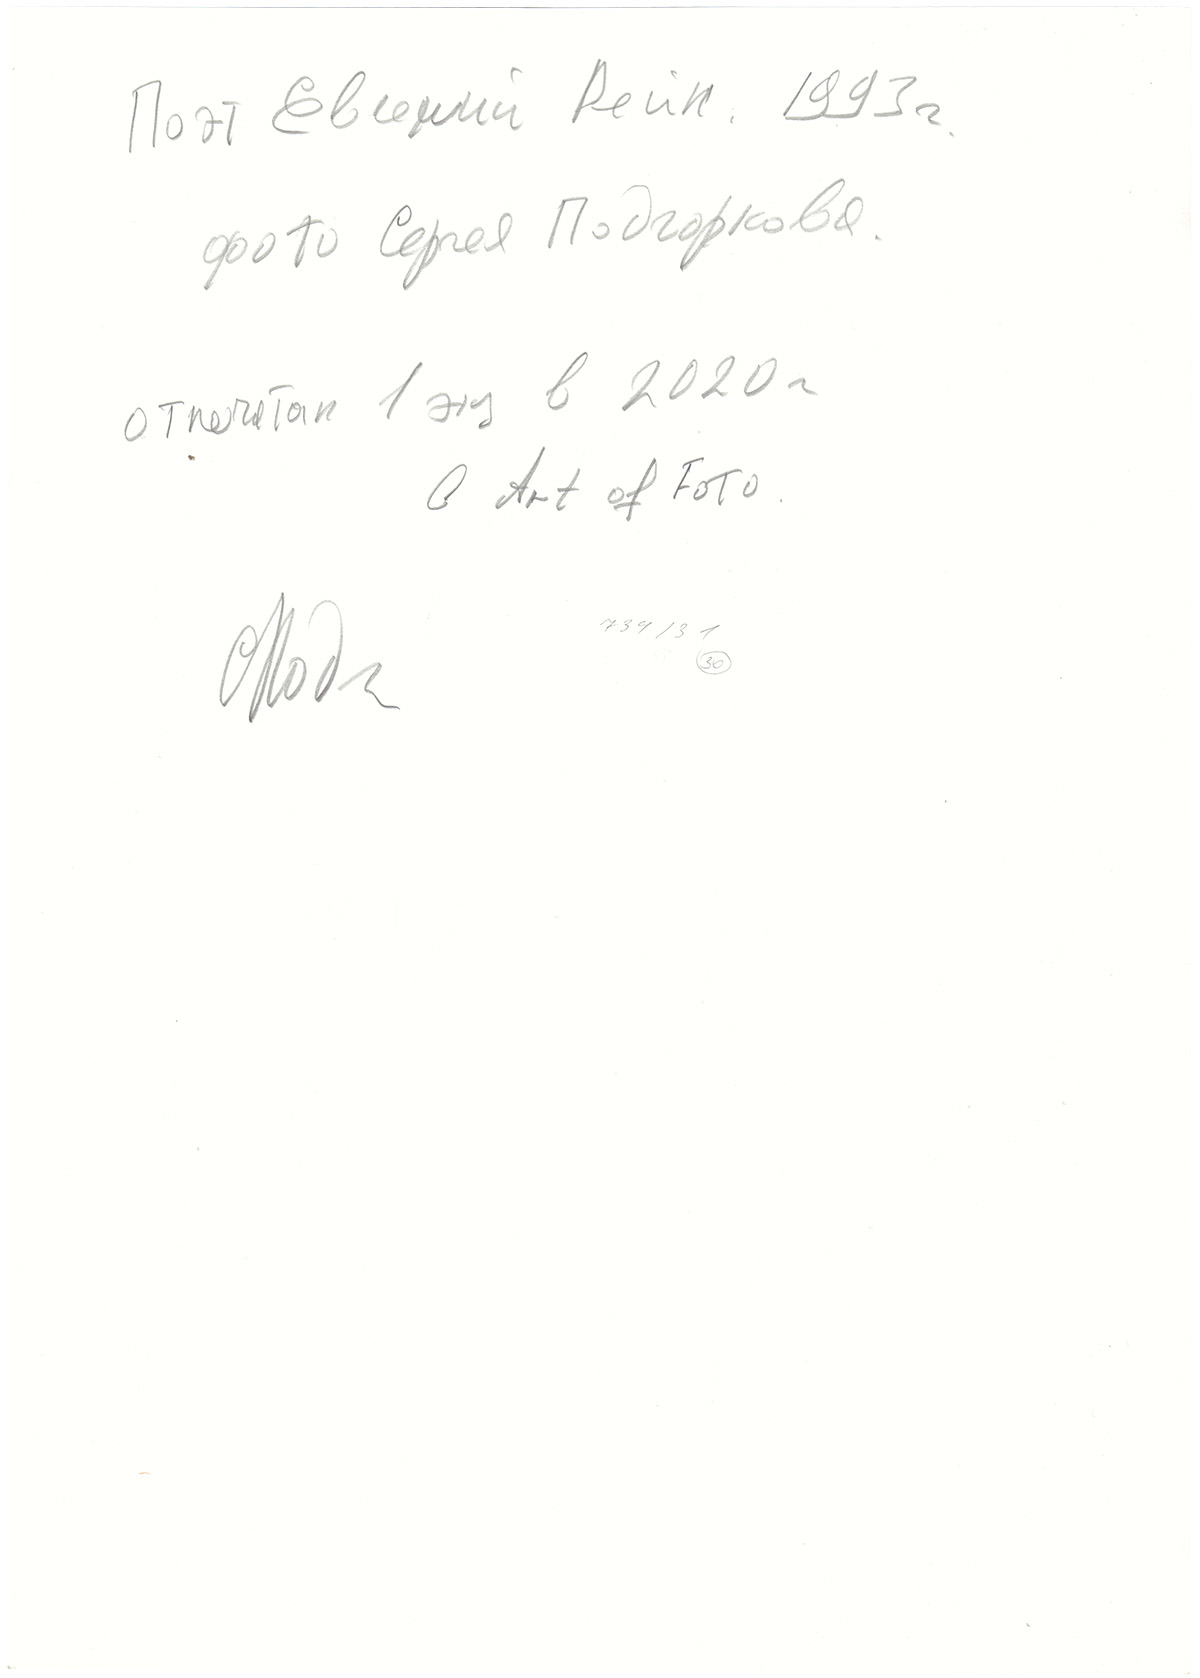 Поэт Евгений Рейн. 1993г.
фото Сергея Подгоркова.
отпечатан 1 экз в 2020г
в Art of Foto.
СПодг
739/31
30